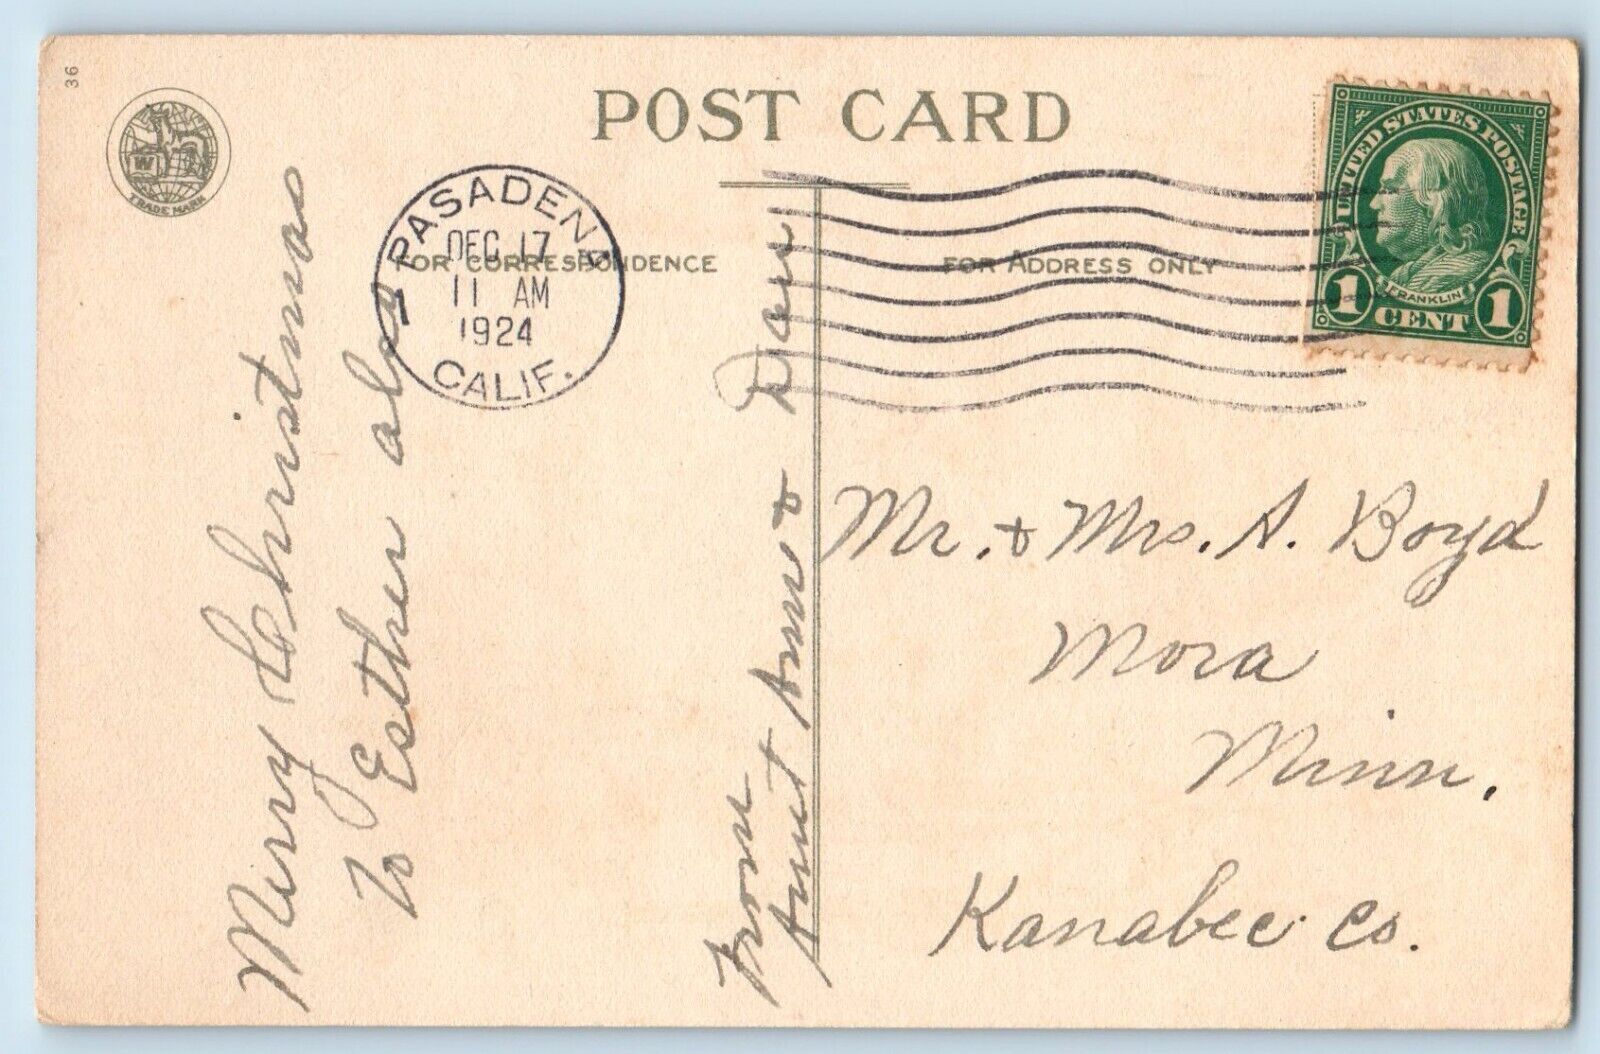 36
W
TRADE MARK
POST CARD
PASADENA
DEC 17
11 AM
1924
CALIF.
1
FOR CORRESPONDENCE
FOR ADDRESS ONLY
UNITED STATES POSTAGE
FRANKLIN
1 CENT 1
Merry Christmas
to Esther also
From
Aunt Ann & Dan
Mr. & Mrs. A. Boyd
Mora
Minn.
Kanabec Co.